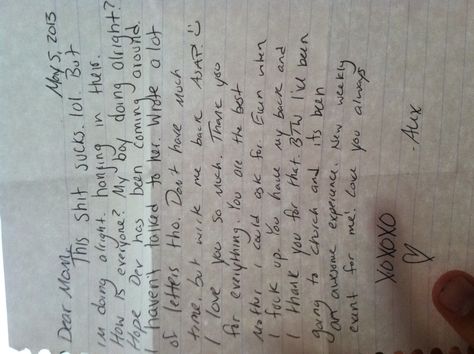 May 5, 2013
Dear Mom,
This shit sucks. lol. But
I'm doing alright. hanging in there.
How is everyone? My boy doing alright?
Hope Dev has been coming around.
I haven't talked to her. Wrote a lot
of letters tho. Don't have much
time, but write me back ASAP. ☺
I love you so much. Thank you
for everything. You are the best
Mother I could ask for. Even when
I fuck up you have my back and
I thank you for that. BTW I've been
going to church and its been
an awesome experience. New weekly
event for me! Love you always
-Alix
XOXOXO
♡